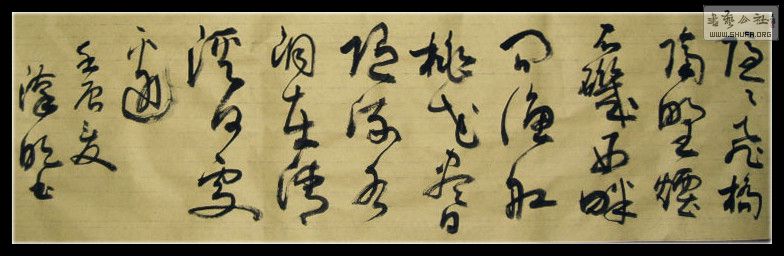 書藝公社
WWW.SHUFA.ORG
隱隱飛橋
隔野煙
石磯西畔
問漁船
桃花盡日
隨流水
洞在清
溪何處
邊
壬辰夏
明書